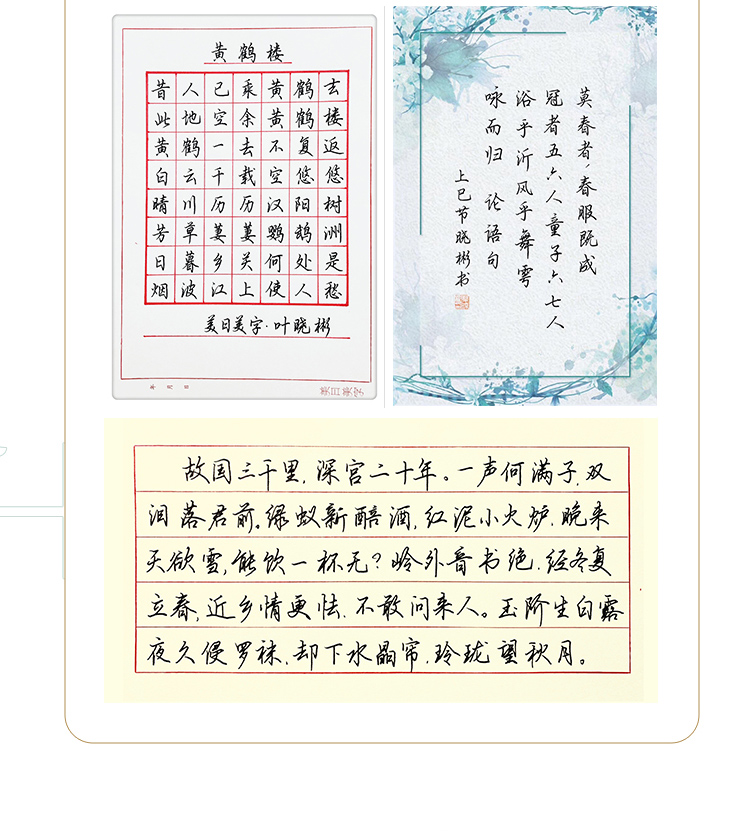 黄鹤楼
昔人已乘黄鹤去
此地空余黄鹤楼
黄鹤一去不复返
白云千载空悠悠
晴川历历汉阳树
芳草萋萋鹦鹉洲
日暮乡关何处是
烟波江上使人愁
美日美字·叶晓彬
年 月 日
美日美字
莫春者,春服既成
冠者五六人童子六七人
浴乎沂风乎舞雩
咏而归 论语句
上巳节晓彬书
故国三千里,深宫二十年。一声何满子,双
泪落君前。绿蚁新醅酒,红泥小火炉.晚来
天欲雪,能饮一杯无?岭外音书绝.经冬复
立春,近乡情更怯.不敢问来人。玉阶生白露
夜久侵罗袜.却下水晶帘.玲珑望秋月。